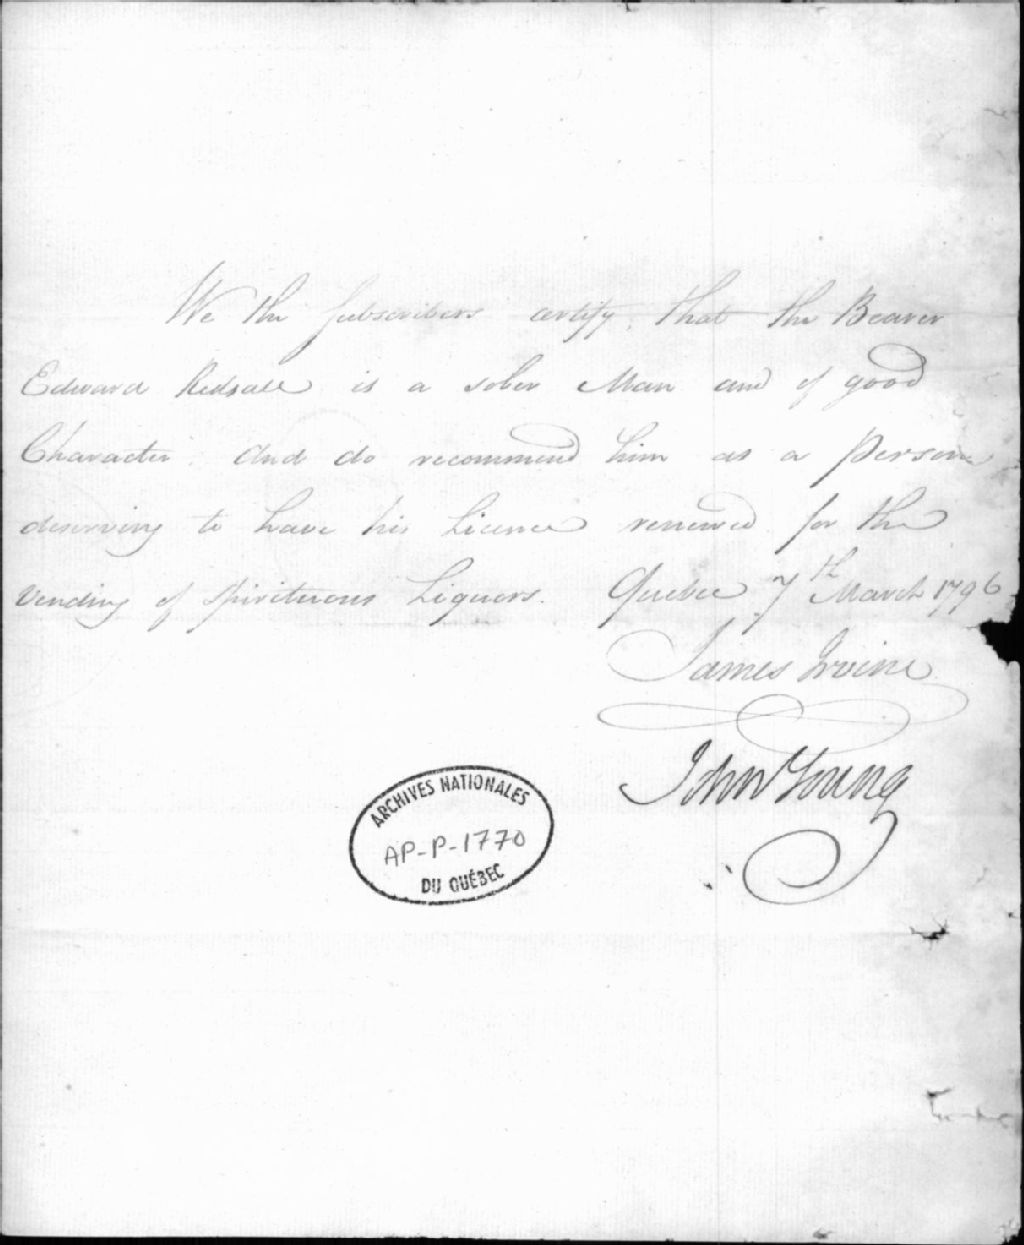 We the Subscribers certify, that the Bearer
Edward Redsall is a sober Man and of good
Character. And do recommend him as a person
deserving to have his Licence renewed for the
Vending of Spirituous Liquors. Quebec 7th March 1796
James Irvine
John Young
ARCHIVES NATIONALES
AP-P-1770
DU QUÉBEC